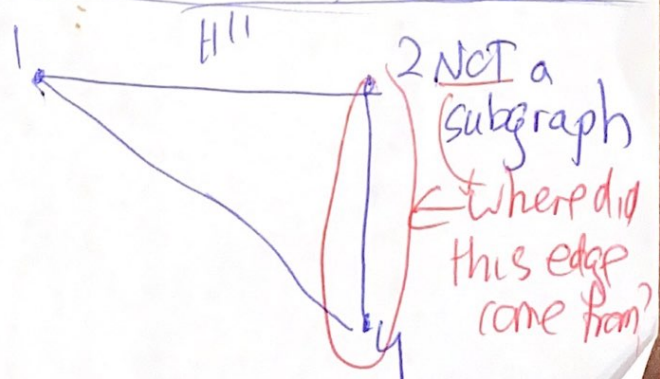 H'''
1
2 NOT a
subgraph
Where did
this edge
come from?
4